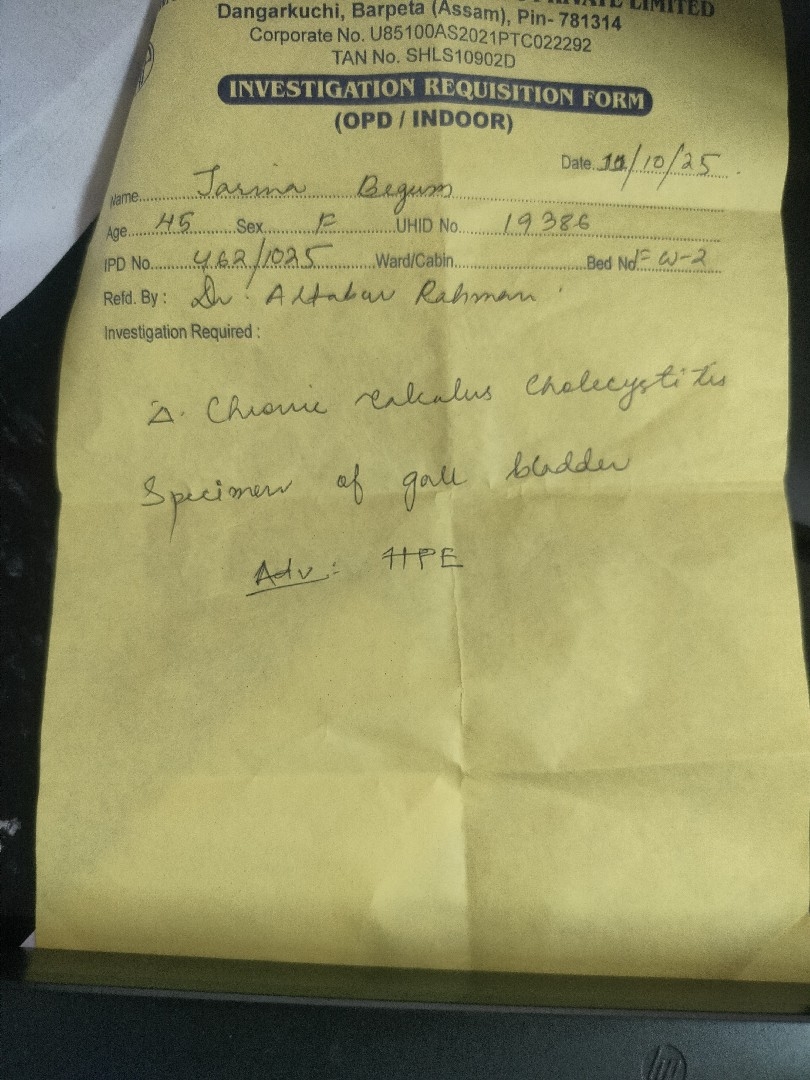 PRIVATE LIMITED
Dangarkuchi, Barpeta (Assam), Pin- 781314
Corporate No. U85100AS2021PTC022292
TAN No. SHLS10902D
INVESTIGATION REQUISITION FORM
(OPD / INDOOR)
Date. 11/10/25
Name. Jarina Begum
Age. 45 Sex. F UHID No. 19386
IPD No. 462/1025 Ward/Cabin. Bed No. F W-2
Refd. By : Dr. Altabur Rahman
Investigation Required :
Δ. Chronic calculus Cholecystitis
Specimen of gall bladder
Adv: HPE
hp